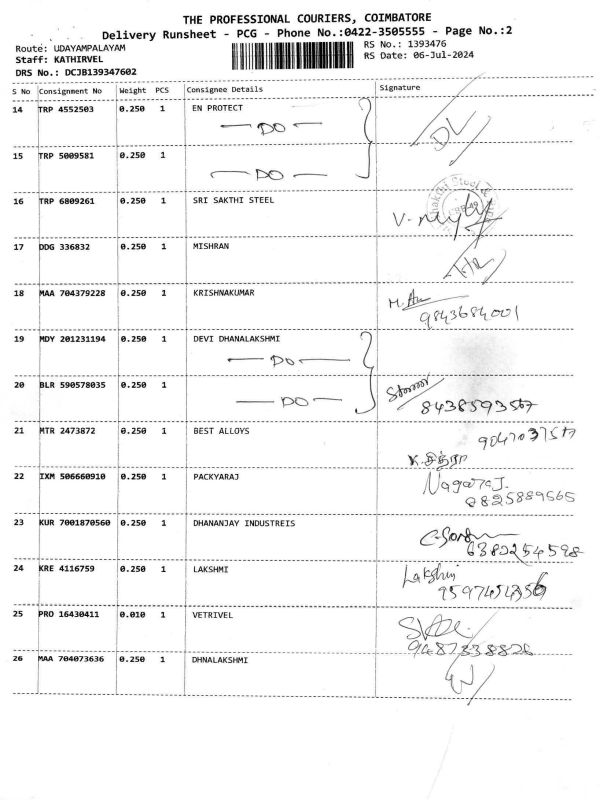 THE PROFESSIONAL COURIERS, COIMBATORE
Delivery Runsheet - PCG - Phone No.:0422-3505555 - Page No.:2
Route: UDAYAMPALAYAM
RS No.: 1393476
Staff: KATHIRVEL
RS Date: 06-Jul-2024
DRS No.: DCJB139347602
S No Consignment No Weight PCS Consignee Details Signature
14 TRP 4552503 0.250 1 EN PROTECT
— DO —
15 TRP 5009581 0.250 1
— DO —
16 TRP 6809261 0.250 1 SRI SAKTHI STEEL
17 DDG 336832 0.250 1 MISHRAN
18 MAA 704379228 0.250 1 KRISHNAKUMAR
9843684001
19 MDY 201231194 0.250 1 DEVI DHANALAKSHMI
— DO —
20 BLR 590578035 0.250 1
— DO —
21 MTR 2473872 0.250 1 BEST ALLOYS
K. சித்ரா
22 IXM 506660910 0.250 1 PACKYARAJ
Nagaraj.
9825889565
23 KUR 7001870560 0.250 1 DHANANJAY INDUSTREIS
6382254598
24 KRE 4116759 0.250 1 LAKSHMI
Lakshmi
25 PRO 16430411 0.010 1 VETRIVEL
9487838826
26 MAA 704073636 0.250 1 DHNALAKSHMI